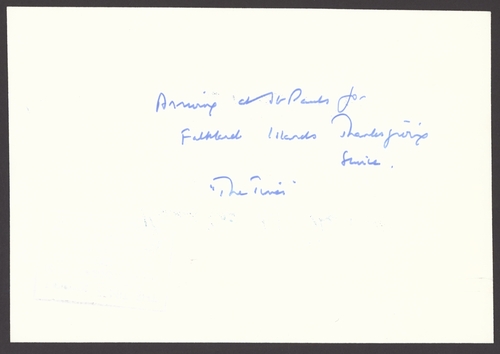 Arriving at St Pauls for
Falkland Islands Thanksgiving
Service.
"The Times"